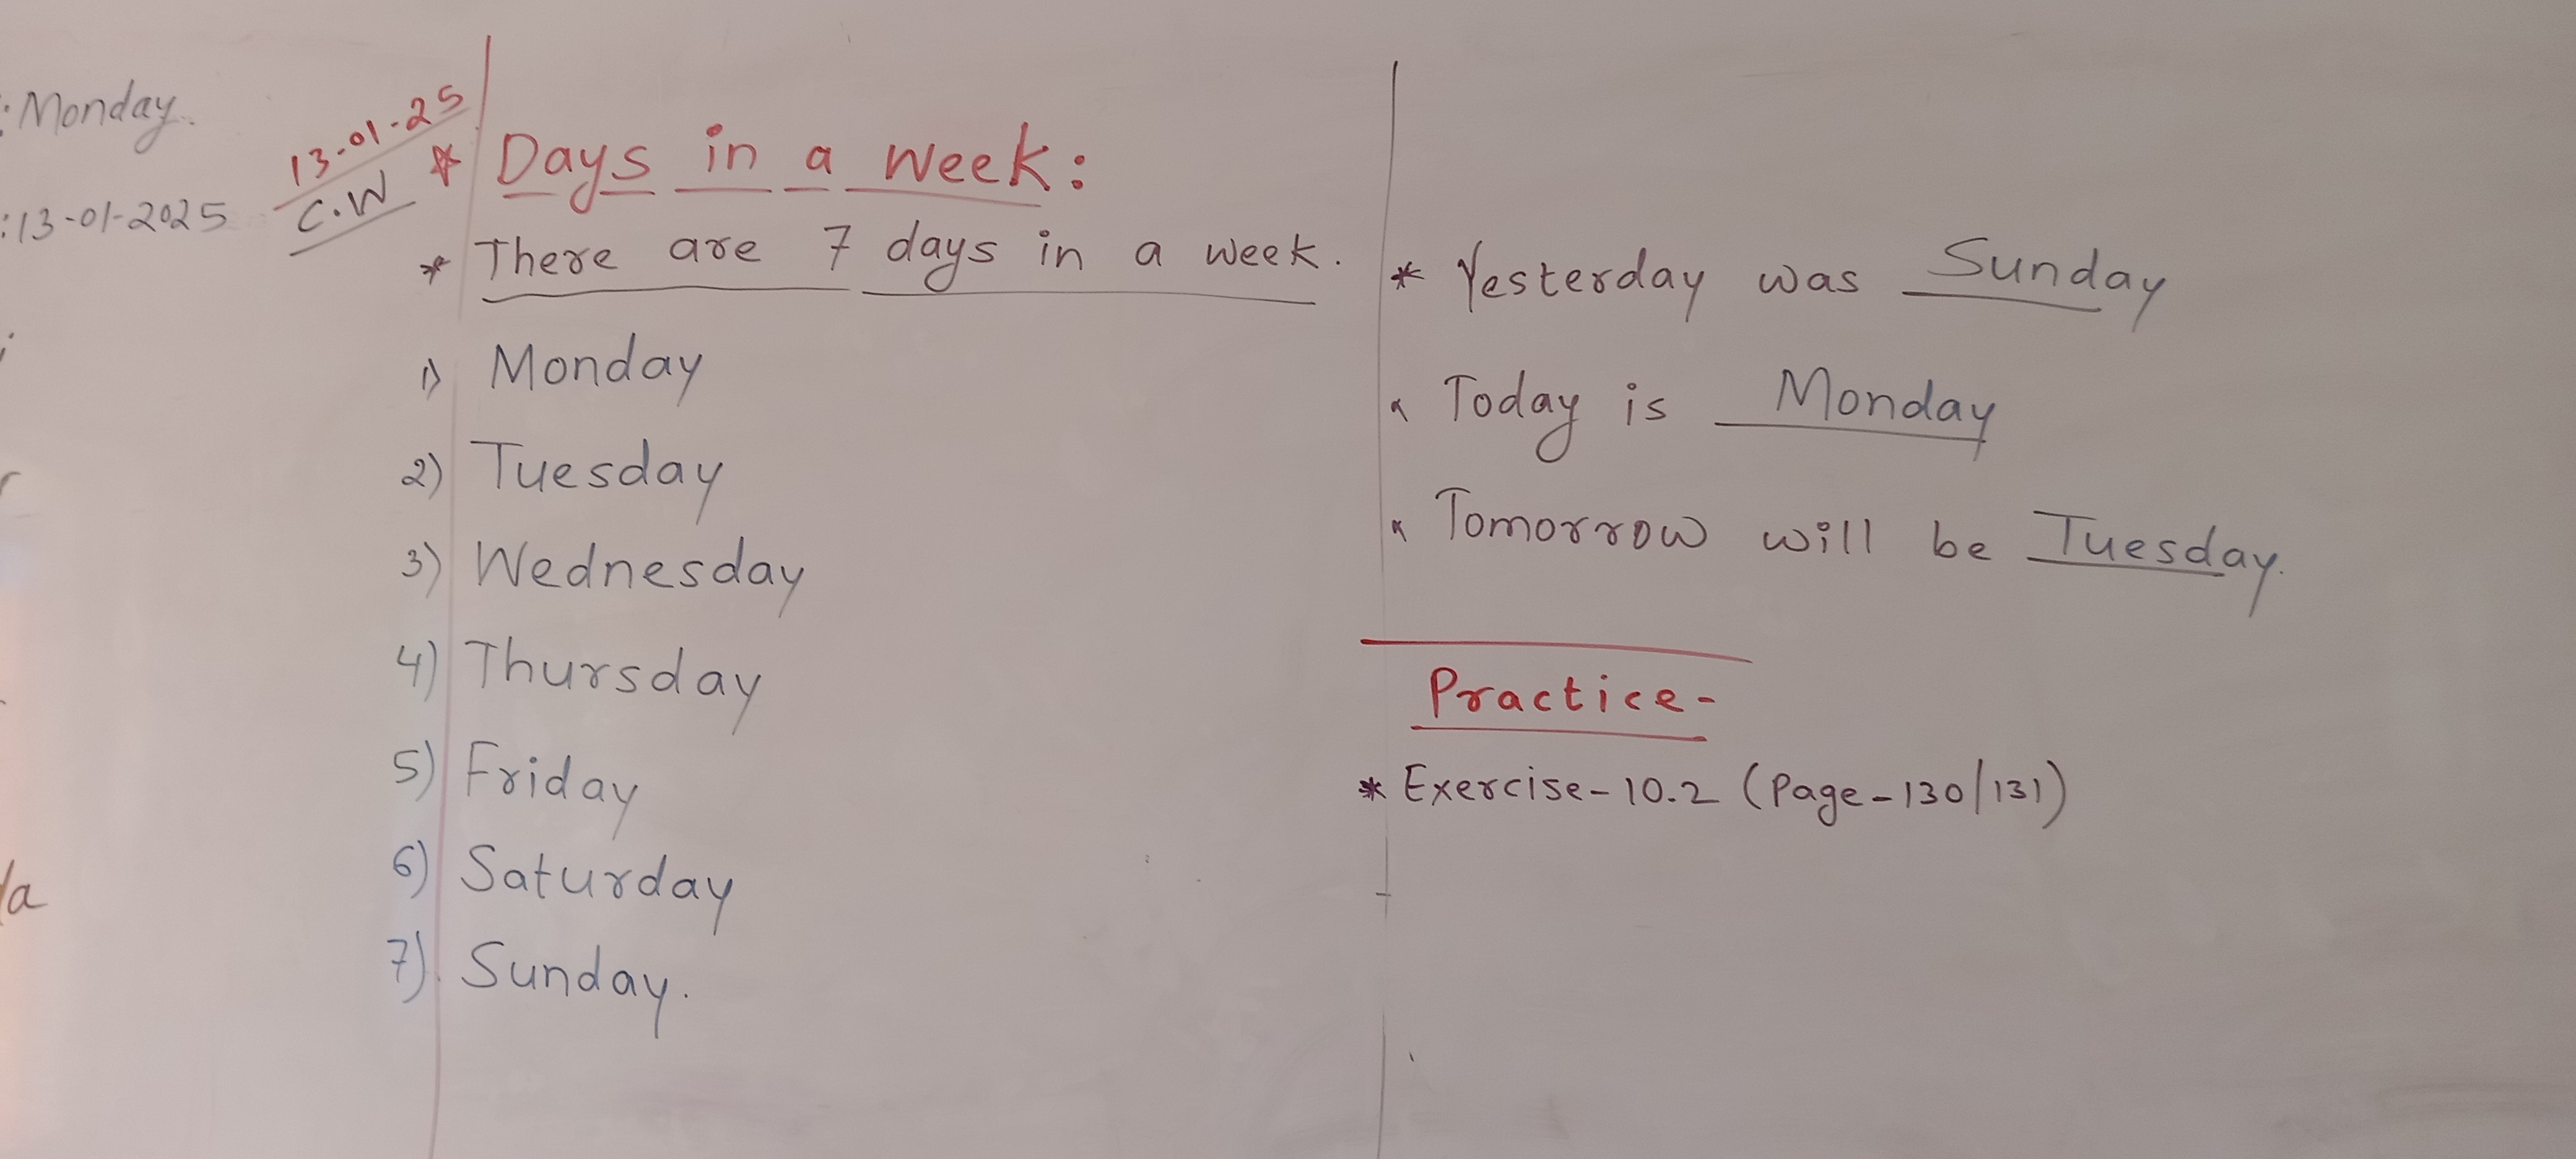 : Monday.
: 13-01-2025
13-01-25
C.W
* Days in a week:
* There are 7 days in a week.
1) Monday
2) Tuesday
3) Wednesday
4) Thursday
5) Friday
6) Saturday
7) Sunday.
* Yesterday was Sunday
* Today is Monday
* Tomorrow will be Tuesday.
Practice-
* Exercise-10.2 (Page-130/131)